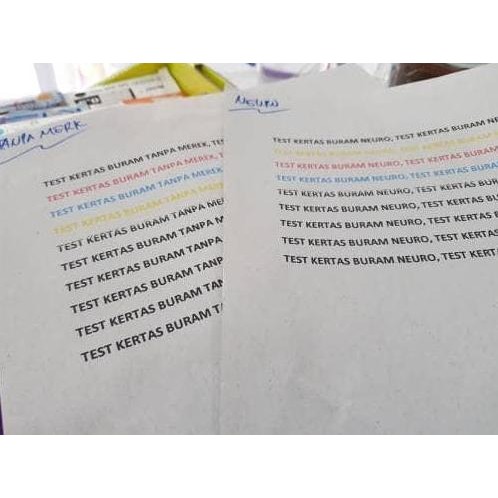 TANPA MERK
TEST KERTAS BURAM TANPA MEREK, TE
TEST KERTAS BURAM TANPA MEREK, T
TEST KERTAS BURAM TANPA MEREK,
TEST KERTAS BURAM TANPA MERE
TEST KERTAS BURAM TANPA ME
TEST KERTAS BURAM TANPA M
TEST KERTAS BURAM TANPA
TEST KERTAS BURAM TANP
TEST KERTAS BURAM TAN
TEST KERTAS BURAM TA
NEURO
TEST KERTAS BURAM NEURO, TEST KERTAS BURAM NE
TEST KERTAS BURAM NEURO, TEST KERTAS BURAM
TEST KERTAS BURAM NEURO, TEST KERTAS BURAM
TEST KERTAS BURAM NEURO, TEST KERTAS BURAM
TEST KERTAS BURAM NEURO, TEST KERTAS BURAM
TEST KERTAS BURAM NEURO, TEST KERTAS BU
TEST KERTAS BURAM NEURO, TEST KERTAS BU
TEST KERTAS BURAM NEURO, TEST KERTAS
TEST KERTAS BURAM NEURO, TEST KERTA